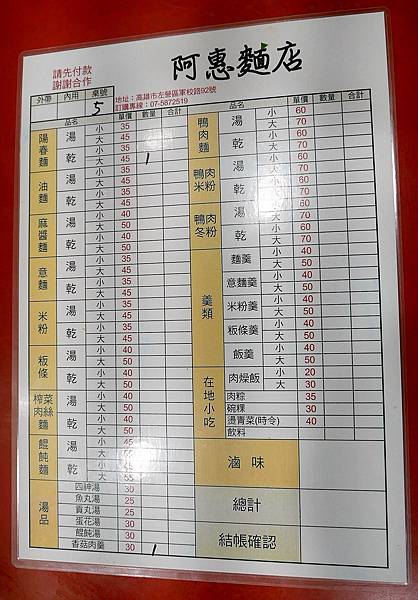 請先付款
謝謝合作
阿惠麵店
地址：高雄市左營區軍校路92號
訂購專線：07-5872519
外帶 內用 桌號 5
品名 單價 數量 合計
陽春麵 湯 小 35
大 45
乾 小 35 1
大 45
油麵 湯 小 35
大 45
乾 小 35
大 45
麻醬麵 湯 小 40
大 50
乾 小 40
大 50
意麵 湯 小 35
大 45
乾 小 35
大 45
米粉 湯 小 35
大 45
乾 小 35
大 45
粄條 湯 小 40
大 50
乾 小 40
大 50
榨菜肉絲麵 湯 小 40
大 50
乾 小 40
大 50
餛飩麵 湯 小 45
大 55
乾 小 45
大 55
湯品 四神湯 30
魚丸湯 25
貢丸湯 25
蛋花湯 30
餛飩湯 30
香菇肉羹 30 1
品名 單價 數量 合計
鴨肉麵 湯 小 60
大 70
乾 小 60
大 70
鴨肉米粉 湯 小 60
大 70
乾 小 60
大 70
鴨肉冬粉 湯 小 60
大 70
乾 小 60
大 70
羹類 麵羹 小 40
大 50
意麵羹 小 40
大 50
米粉羹 小 40
大 50
粄條羹 小 40
大 50
飯羹 小 40
大 50
在地小吃 肉燥飯 小 20
大 30
肉粽 35
碗粿 30
燙青菜(時令) 40
飲料
滷味
總計
結帳確認